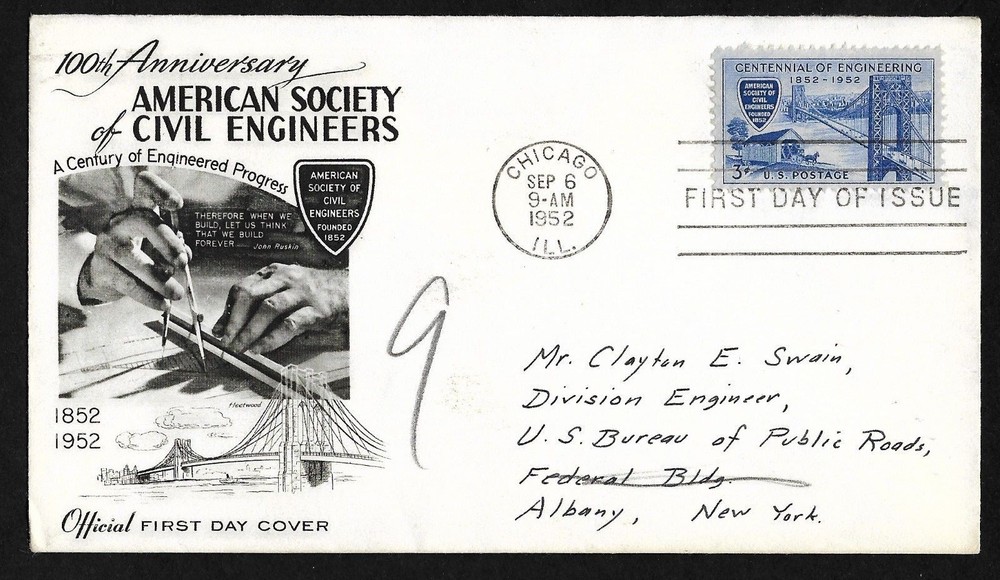 100th Anniversary
AMERICAN SOCIETY
of CIVIL ENGINEERS
A Century of Engineered Progress
THEREFORE WHEN WE
BUILD, LET US THINK
THAT WE BUILD
FOREVER
John Ruskin
AMERICAN
SOCIETY OF
CIVIL
ENGINEERS
FOUNDED
1852
Fleetwood
1852
1952
Official FIRST DAY COVER
9
CHICAGO
SEP 6
9-AM
1952
ILL.
CENTENNIAL OF ENGINEERING
1852-1952
AMERICAN
SOCIETY OF
CIVIL
ENGINEERS
FOUNDED
1852
3¢ U.S. POSTAGE
FIRST DAY OF ISSUE
Mr. Clayton E. Swain,
Division Engineer,
U.S. Bureau of Public Roads,
Federal Bldg.
Albany, New York.